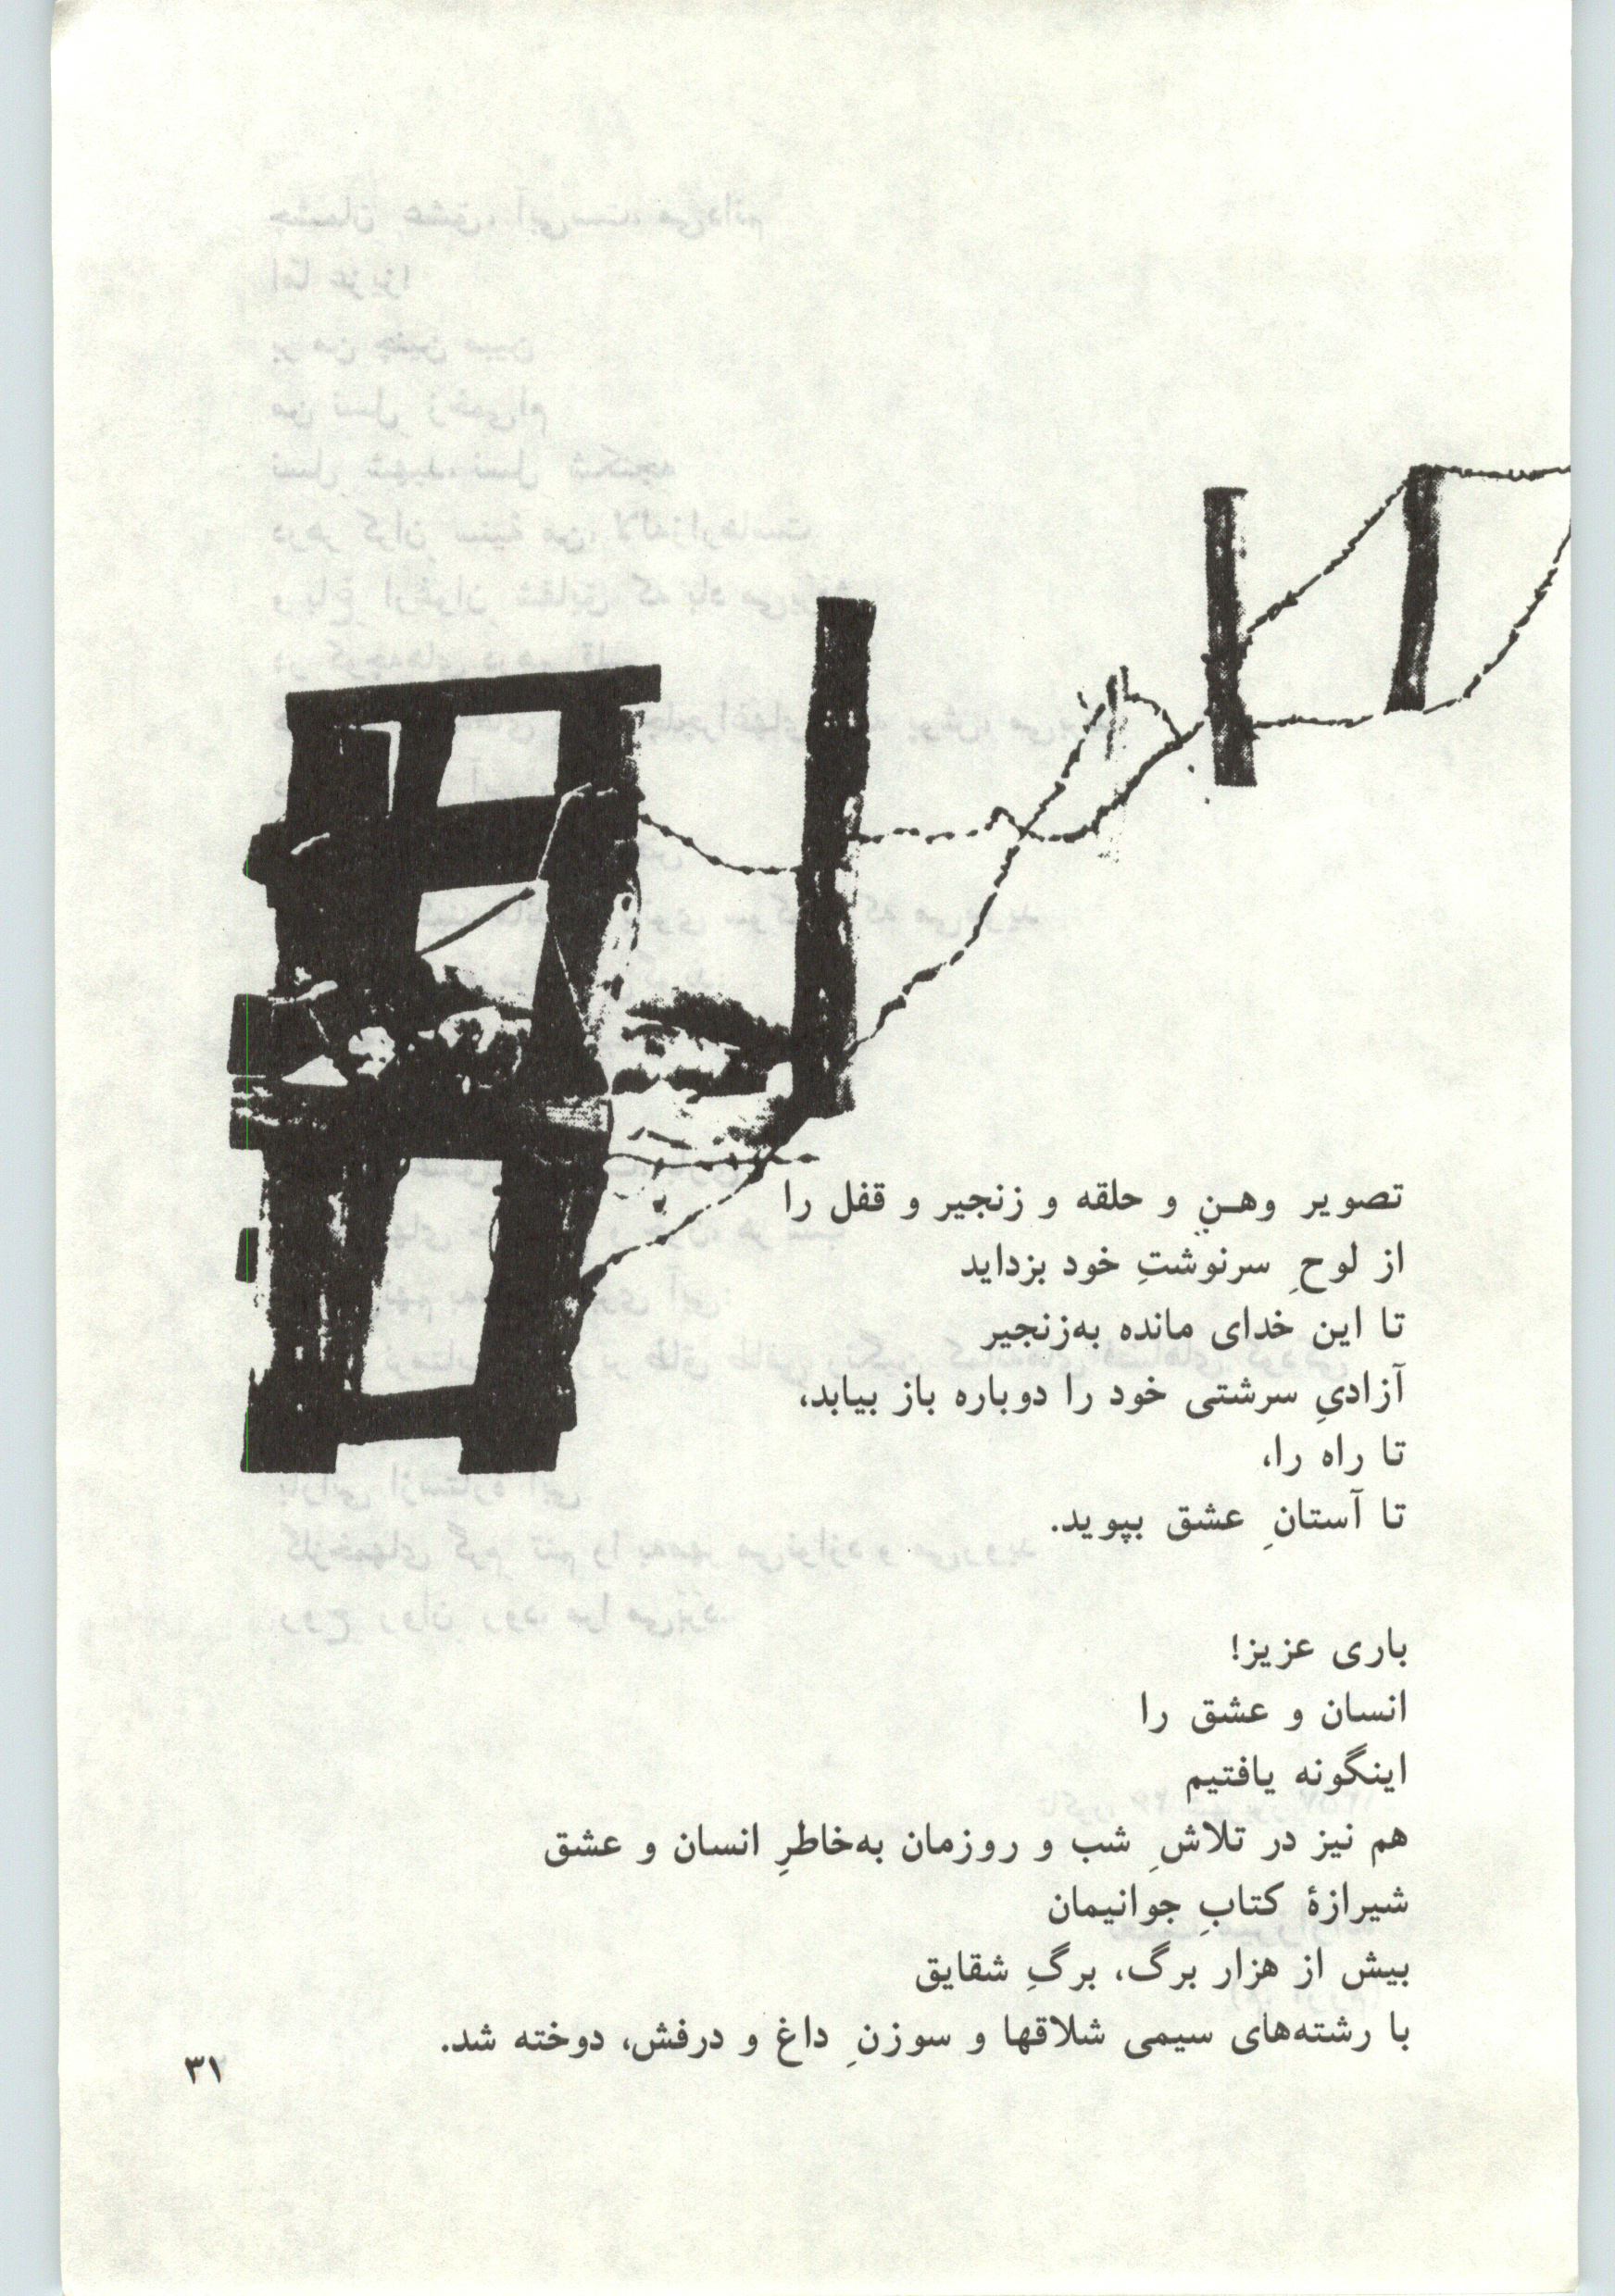 تصویر وهنِ و حلقه و زنجیر و قفل را
از لوحِ سرنوشتِ خود بزداید
تا این خدای مانده به‌زنجیر
آزادیِ سرشتی خود را دوباره باز بیابد،
تا راه را،
تا آستانِ عشق بپوید.
باری عزیز!
انسان و عشق را
اینگونه یافتیم
هم نیز در تلاشِ شب و روزمان به‌خاطرِ انسان و عشق
شیرازهٔ کتابِ جوانیمان
بیش از هزار برگ، برگِ شقایق
با رشته‌های سیمی شلاقها و سوزنِ داغ و درفش، دوخته شد.
۳۱